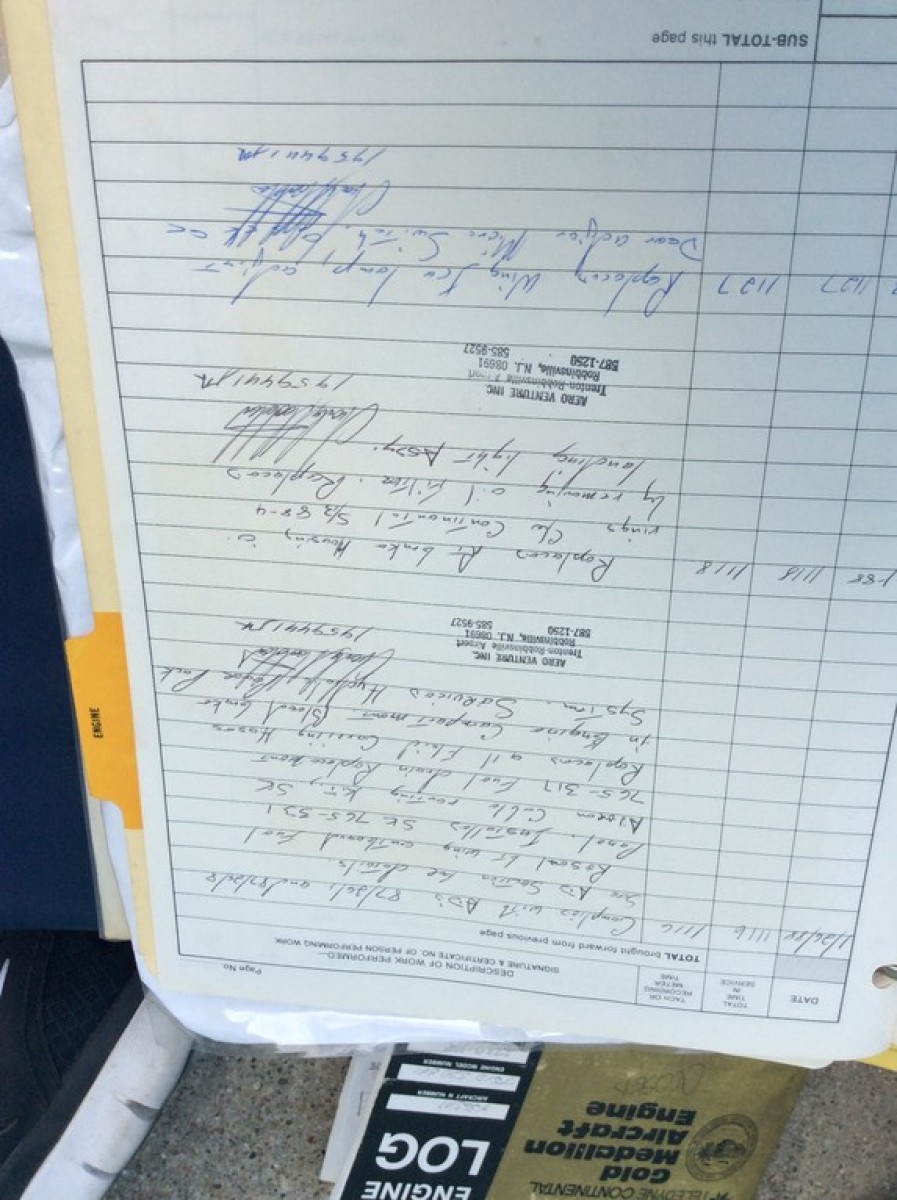 Page No.
DATE
TOTAL TIME IN SERVICE
TACH OR RECORDING METER TIME
DESCRIPTION OF WORK PERFORMED—
SIGNATURE & CERTIFICATE NO. OF PERSON PERFORMING WORK
TOTAL brought forward from previous page
1116 1116 Complied with AD's 87/26/ and 87/26/8
See AD Section for details.
Reseal Rt wing outboard fuel
Panel. Installed SK 765-
Cable routing kit, SK
765-317 Fuel drain Replacement
Replaced all Fluid Carrying Hoses
in Engine Compartment Bleed brake
System. Serviced Hyd Power Pack
1959441
AERO VENTURE INC.
Trenton-Robbinsville Airport
Robbinsville, N.J. 08691
587-1250 585-9527
-88 1118 1118 Replaced Rt brake Housing, o
rings C/w Continental S/B 88-4
by removing oil filter. Replaced
landing light Assy.
1959441
AERO VENTURE INC.
Trenton-Robbinsville Airport
Robbinsville, N.J. 08691
587-1250 585-9527
1127 1127 Replaced Wing Ice lamp, adjust
Door adjust Micro Switch.
1959441
SUB-TOTAL this page
ENGINE
TELEDYNE CONTINENTAL
Gold
Medallion
Aircraft
Engine
ENGINE
LOG
AIRCRAFT N NUMBER
ENGINE MODEL NUMBER